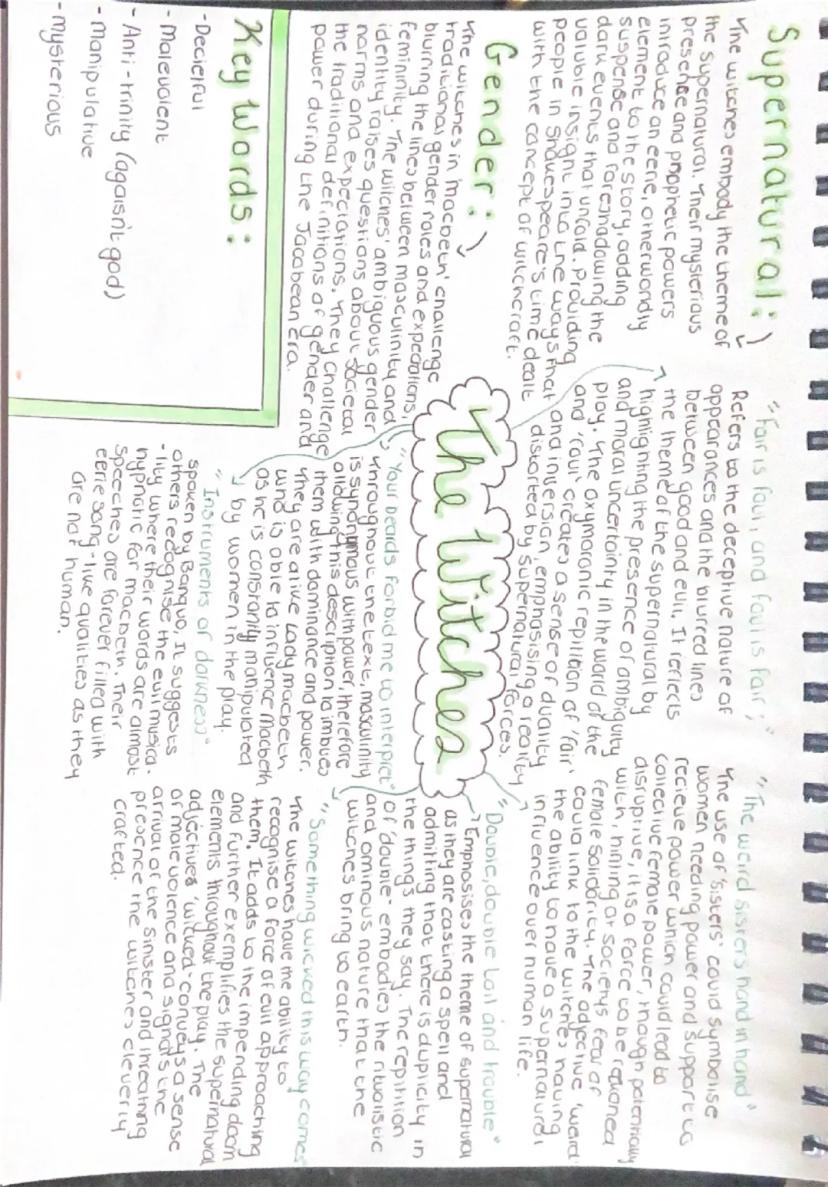 Supernatural:
The witches embody the theme of
the supernatural. Their mysterious
presence and prophetic powers
introduce an eerie, otherwordly
element to the story, adding
suspense and foreshadowing the
dark events that unfold. Providing
valuble insight into the ways that
people in Shakespeare's time dealt
with the concept of witchcraft.
Gender:
The witches in 'macbeth' challenge
traditional gender roles and expectations,
blurring the lines between masculinity and
femininity. The witches' ambiguous gender
identity raises questions about societal
norms and expectations. They challenge
the traditional definitions of gender and
power during the Jacobean era.
Key Words:
- Decieful
- Malevolent
- Anti-trinity (agaisn't god)
- manipulative
- mysterious
"Fair is foul, and foul is fair;"
Refers to the deceptive nature of
appearances and the blurred lines
between good and evil. It reflects
the theme of the supernatural by
highlighting the presence of ambiguity
and moral uncertainty in the world of the
play. The oxymoronic repitition of 'fair'
and 'foul' creates a sense of duality
and inversion, emphasising a reality
distorted by supernatural forces.
The Witches
"Your beards forbid me to interpret"
Throughout the text, masculinity
is synonymous with power, therefore
allowing this description to imbues
them with dominance and power.
They are alive Lady macbeth
who is able to influence Macbeth
as he is constantly manipulated
by women in the play.
"Instruments of darkness"
spoken by Banquo, It suggests
others recognise the evil musica-
-lity where their words are almost
hypnotic for macbeth. Their
speeches are forever filled with
eerie song-like qualities as they
are not human.
"The weird sisters hand in hand"
The use of 'sisters' could symbolise
women needing power and support to
recieve power which could lead to
collective female power, though potentially
disruptive, it is a force to be reckoned
with, hinting at societys fear of
female solidarity. The adjective 'weird'
could link to the witches having
the ability to have a supernatural
influence over human life.
"Double, double toil and trouble"
Emphasises the theme of supernatural
as they are casting a spell and
admitting that there is duplicity in
the things they say. The repitition
of 'double' embodies the ritualistic
and ominous nature that the
witches bring to earth.
"Something wicked this way comes"
The witches have the ability to
recognise a force of evil approaching
them. It adds to the impending doom
and further exemplifies the supernatural
elements throughout the play. The
adjectives 'wicked' conveys a sense
of malevolence and signals the
arrival of the sinister and threatning
presence the witches cleverly
crafted.